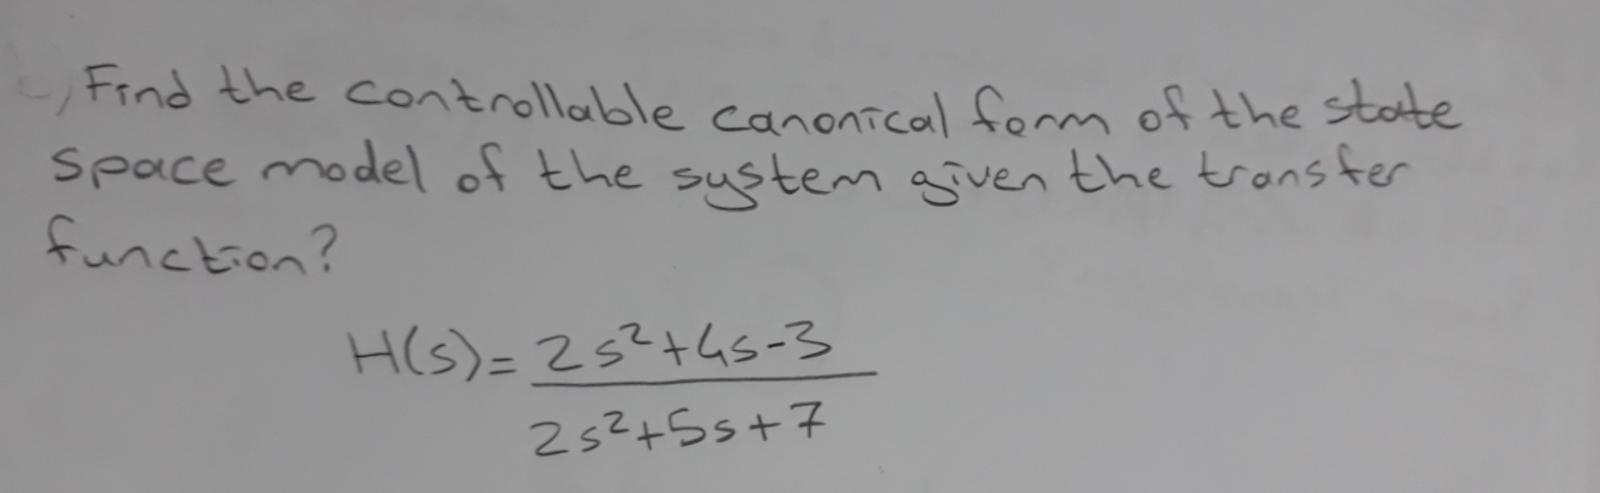 Find the controllable canonical form of the state
space model of the system given the transfer
function?
H(s)= 2s²+4s-3
2s²+5s+7